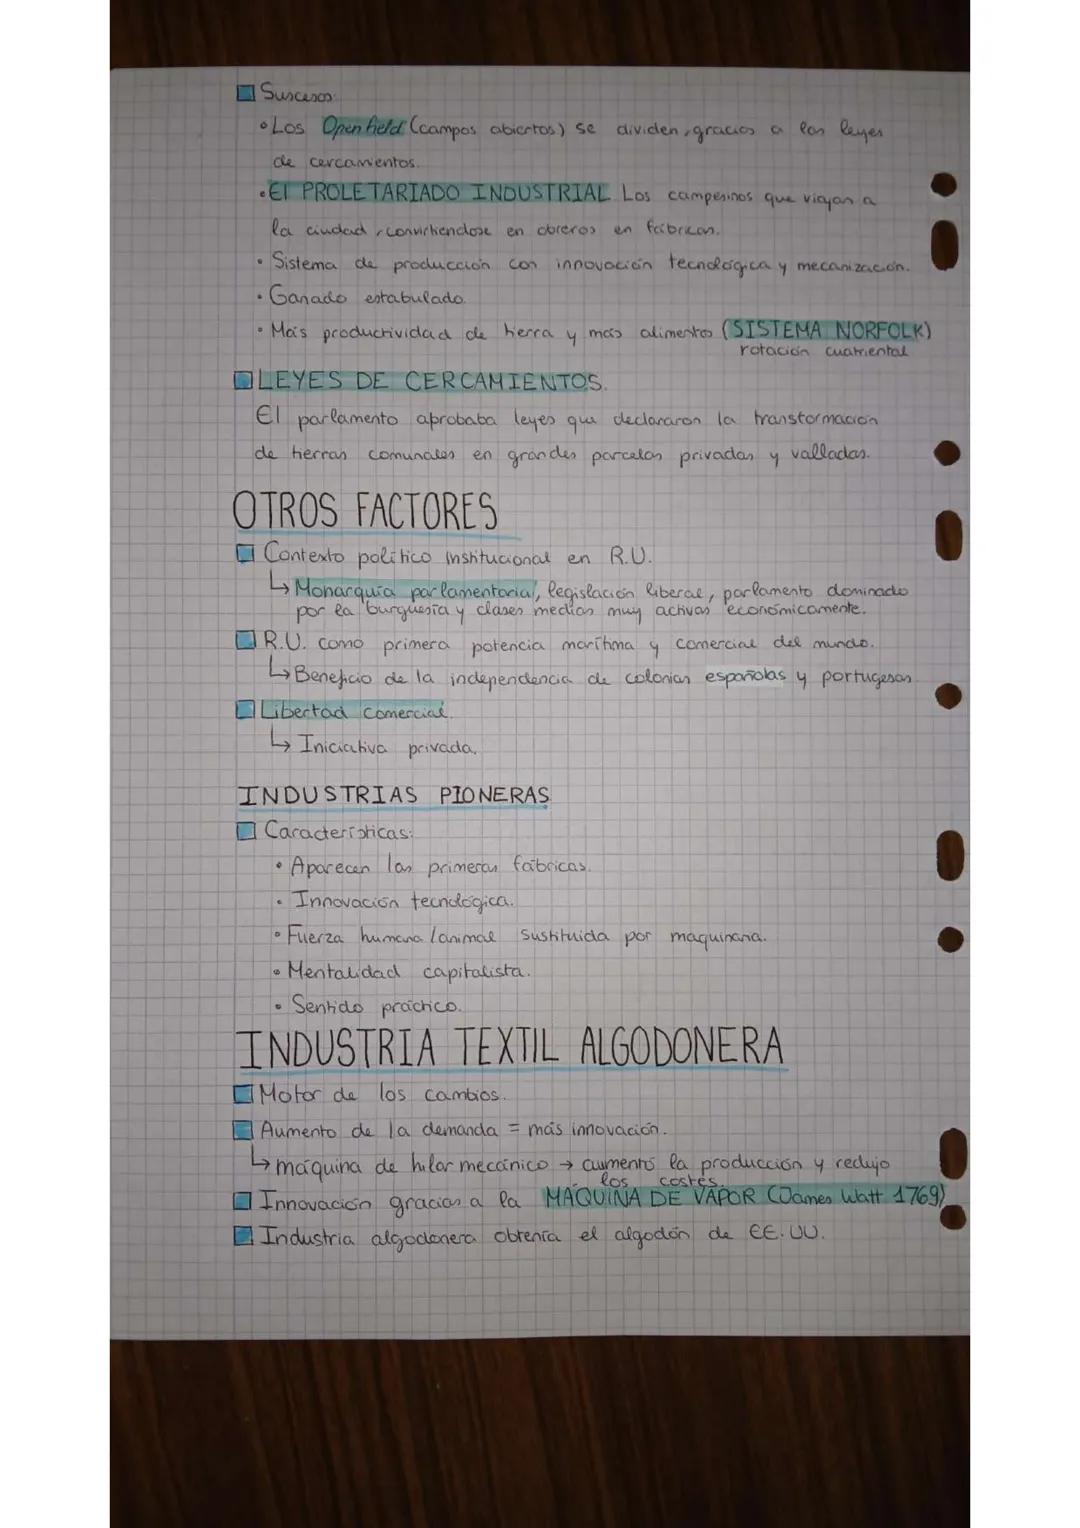 Suscesos:
• Los Open field (campos abiertos) se dividen, gracias a las leyes
de cercamientos.
• El PROLETARIADO INDUSTRIAL. Los campesinos que viajan a
la ciudad, convirtiendose en obreros en fábricas.
• Sistema de producción con innovación tecnológica y mecanización.
• Ganado estabulado.
• Más productividad de tierra y más alimentos (SISTEMA NORFOLK)
rotación cuatriental
LEYES DE CERCAMIENTOS.
El parlamento aprobaba leyes que declararon la transformación
de tierras comunales en grandes parcelas privadas y valladas.
OTROS FACTORES
Contexto político institucional en R.U.
↳ Monarquía parlamentaria, legislación liberal, parlamento dominado
por la burguesía y clases medias muy activas económicamente.
R.U. como primera potencia marítima y comercial del mundo.
↳ Beneficio de la independencia de colonias españolas y portugesas.
Libertad comercial.
↳ Iniciativa privada.
INDUSTRIAS PIONERAS
Características:
• Aparecen las primeras fábricas.
• Innovación tecnológica.
• Fuerza humana/animal sustituida por maquinaria.
• Mentalidad capitalista.
• Sentido práctico.
INDUSTRIA TEXTIL ALGODONERA
Motor de los cambios.
Aumento de la demanda = más innovación.
↳ máquina de hilar mecánico → aumentó la producción y redujo
los costes.
Innovación gracias a la MÁQUINA DE VAPOR (James Watt 1769)
Industria algodonera obtenía el algodón de EE.UU.